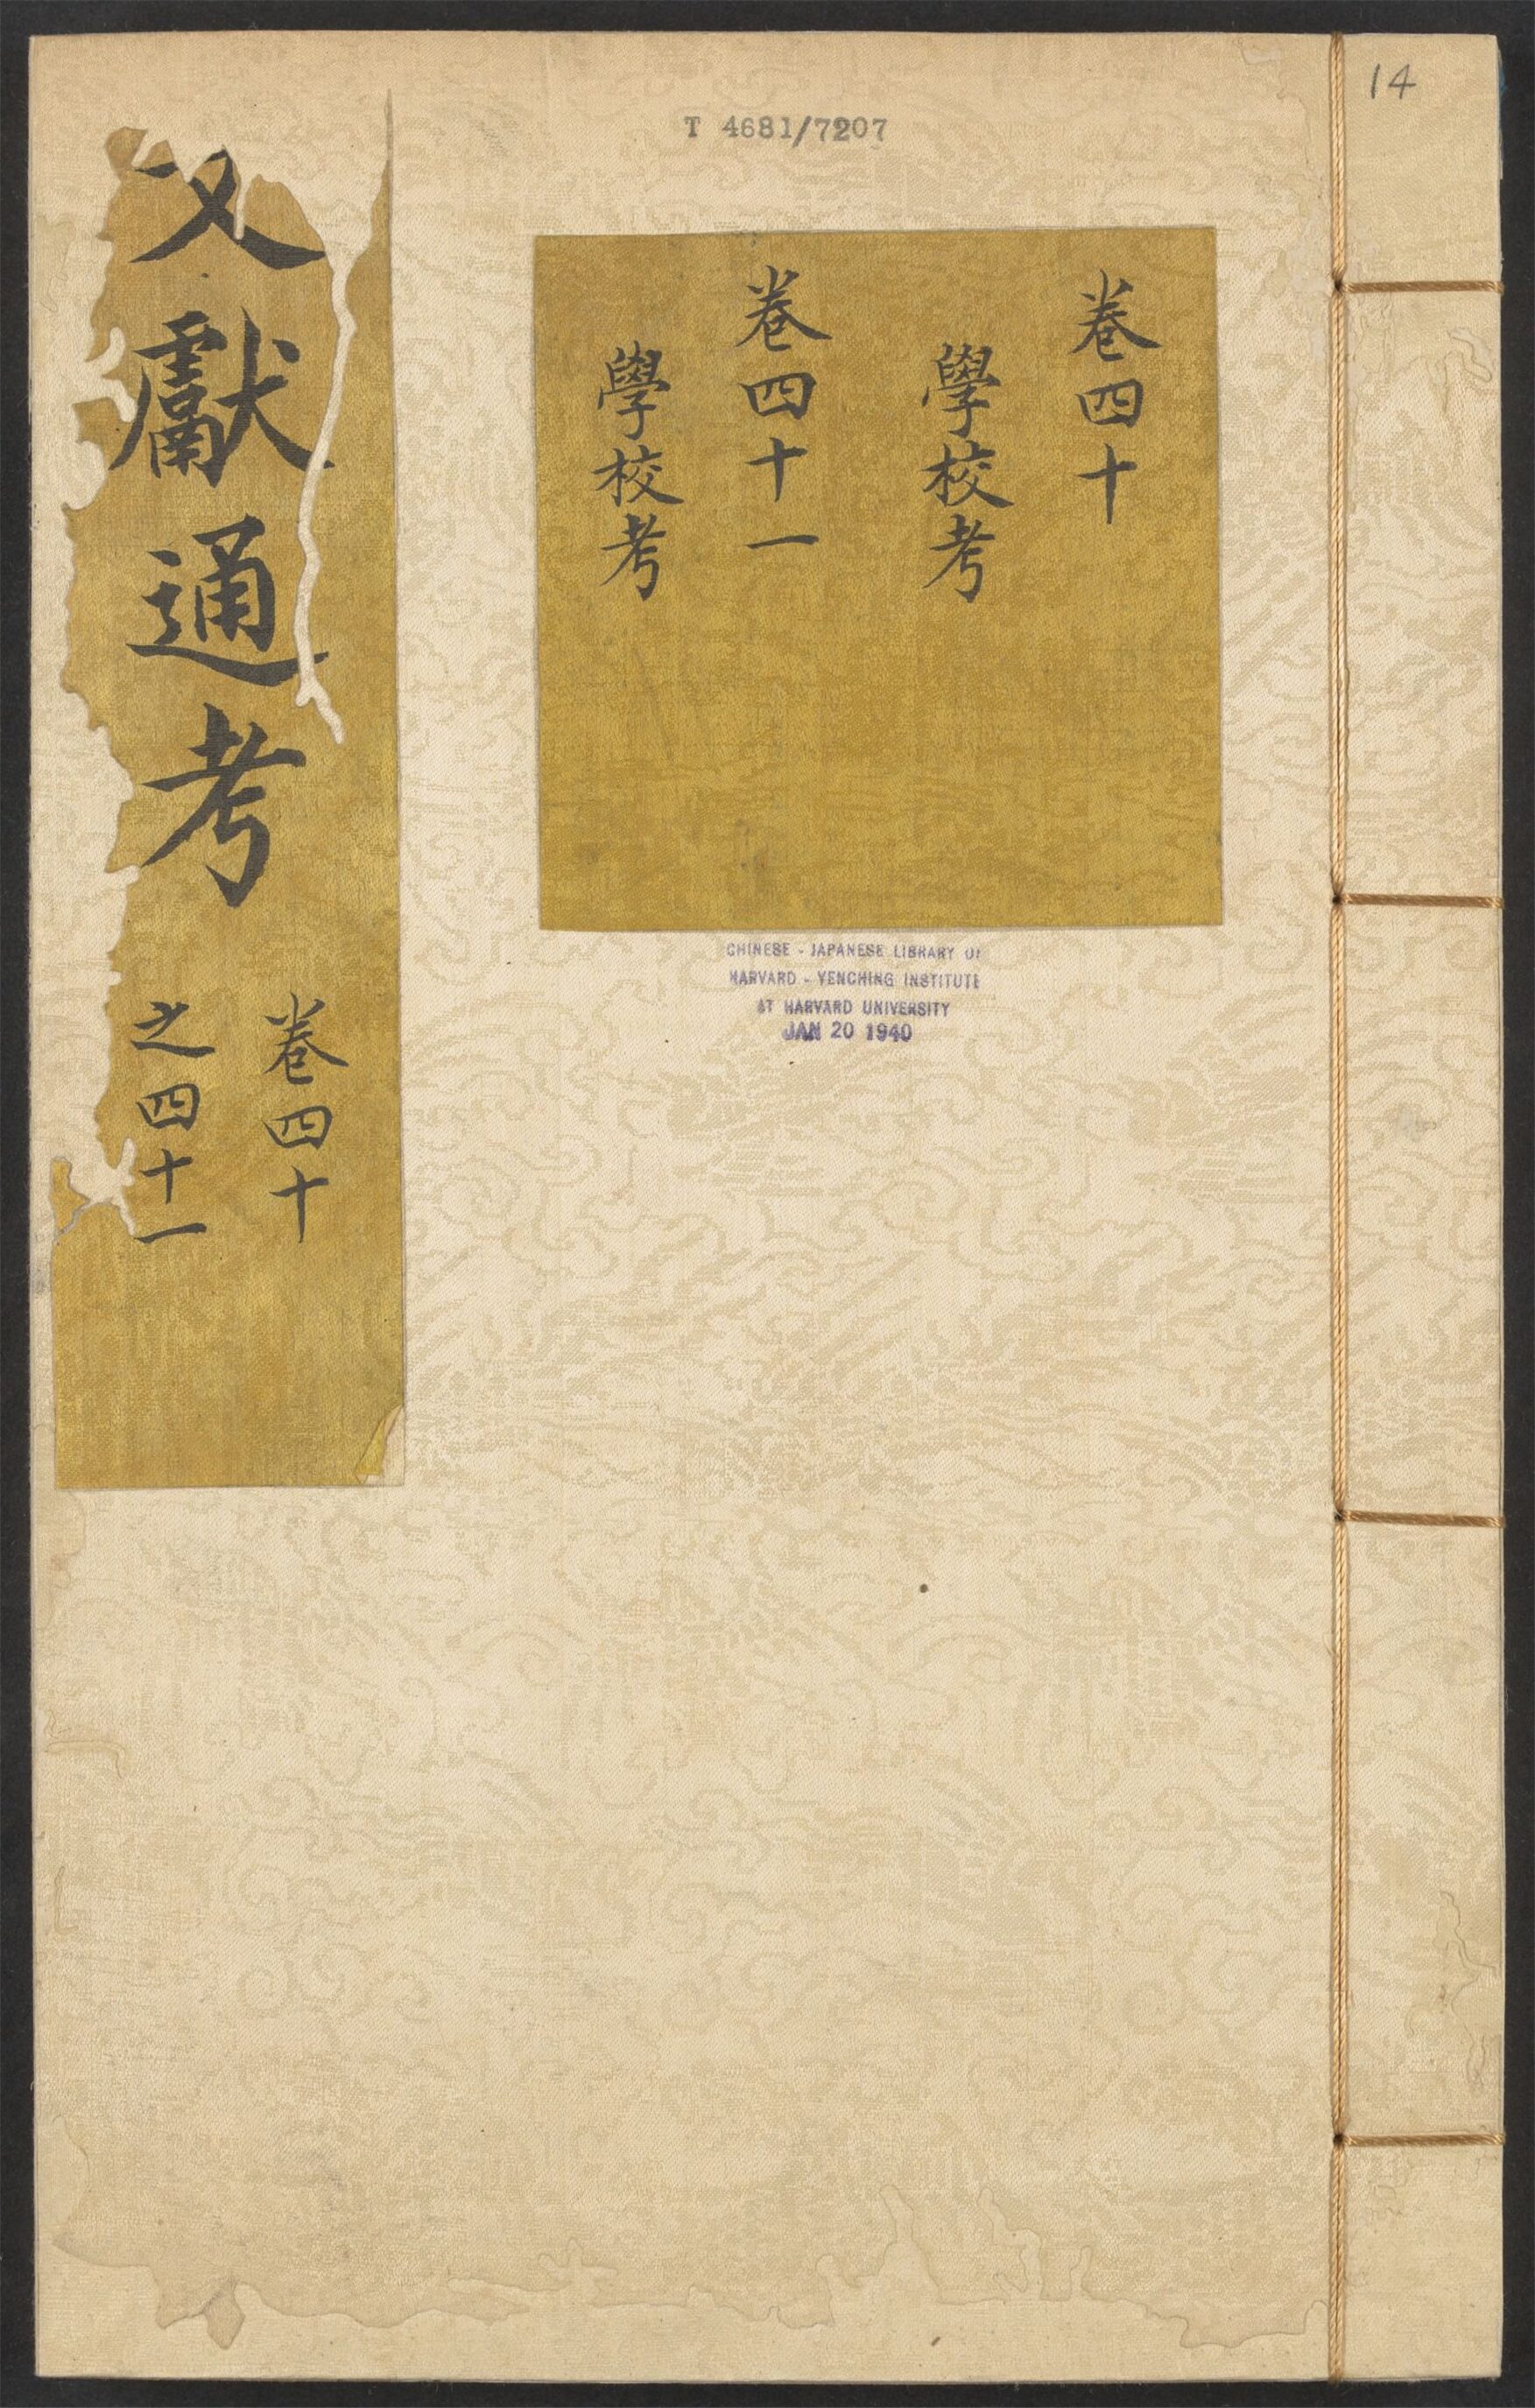 14
T 4681/7207
卷四十
學校考
卷四十一
學校考
文獻通考
卷四十
之四十一
CHINESE - JAPANESE LIBRARY OF
HARVARD - YENCHING INSTITUTE
AT HARVARD UNIVERSITY
JAN 20 1940